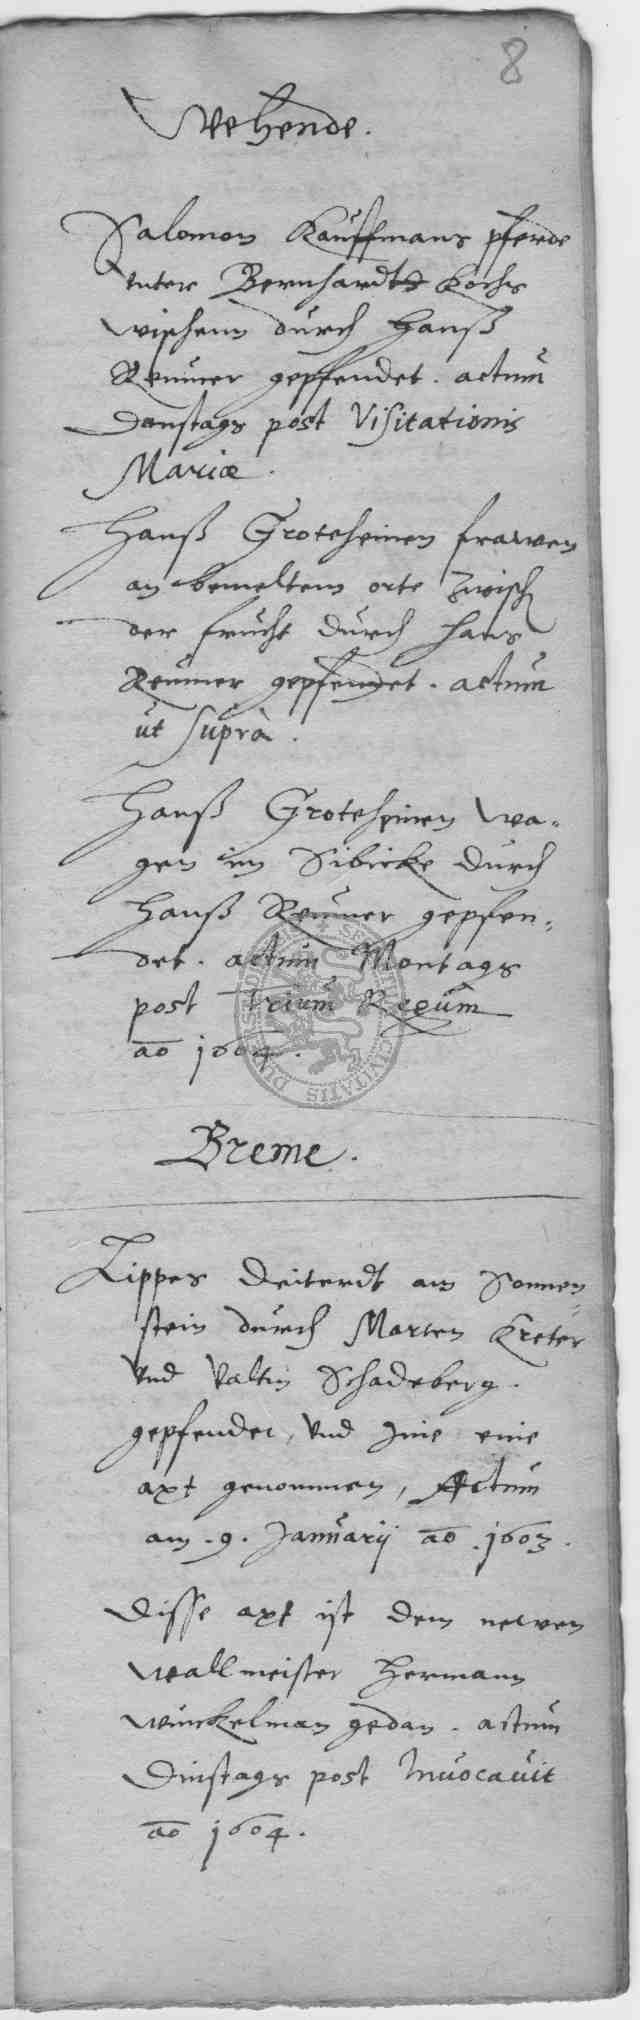 8
Wehende.
Salomon Kauffmans pferde
unter Bernhardts Kochs
wischenn durch Hanß
Reumer gepfendet. actum
Donstags post Visitationis
Mariæ.
Hanß Groteheinen frawen
an bemeltem orte zwisch
der frucht durch Hans
Reumer gepfendet. actum
ut suprà.
Hanß Groteheinen wa-
gen im Sibicke durch
Hanß Reumer gepfen-
det. actum Montags
post Trium Regum
ao 1604.
Breme.
Lippes Deiterdt am Sonnen-
stein durch Marten Kreter
und Valtin Schadeberg.
gepfendet, und jme eine
axt genommen, Actum
am .9. Januarij ao .1603.
Disse axt ist dem newen
wallmeister Hermann
Winckelman gedan. actum
Dinstags post Invocavit
ao 1604.
CIVITATIS